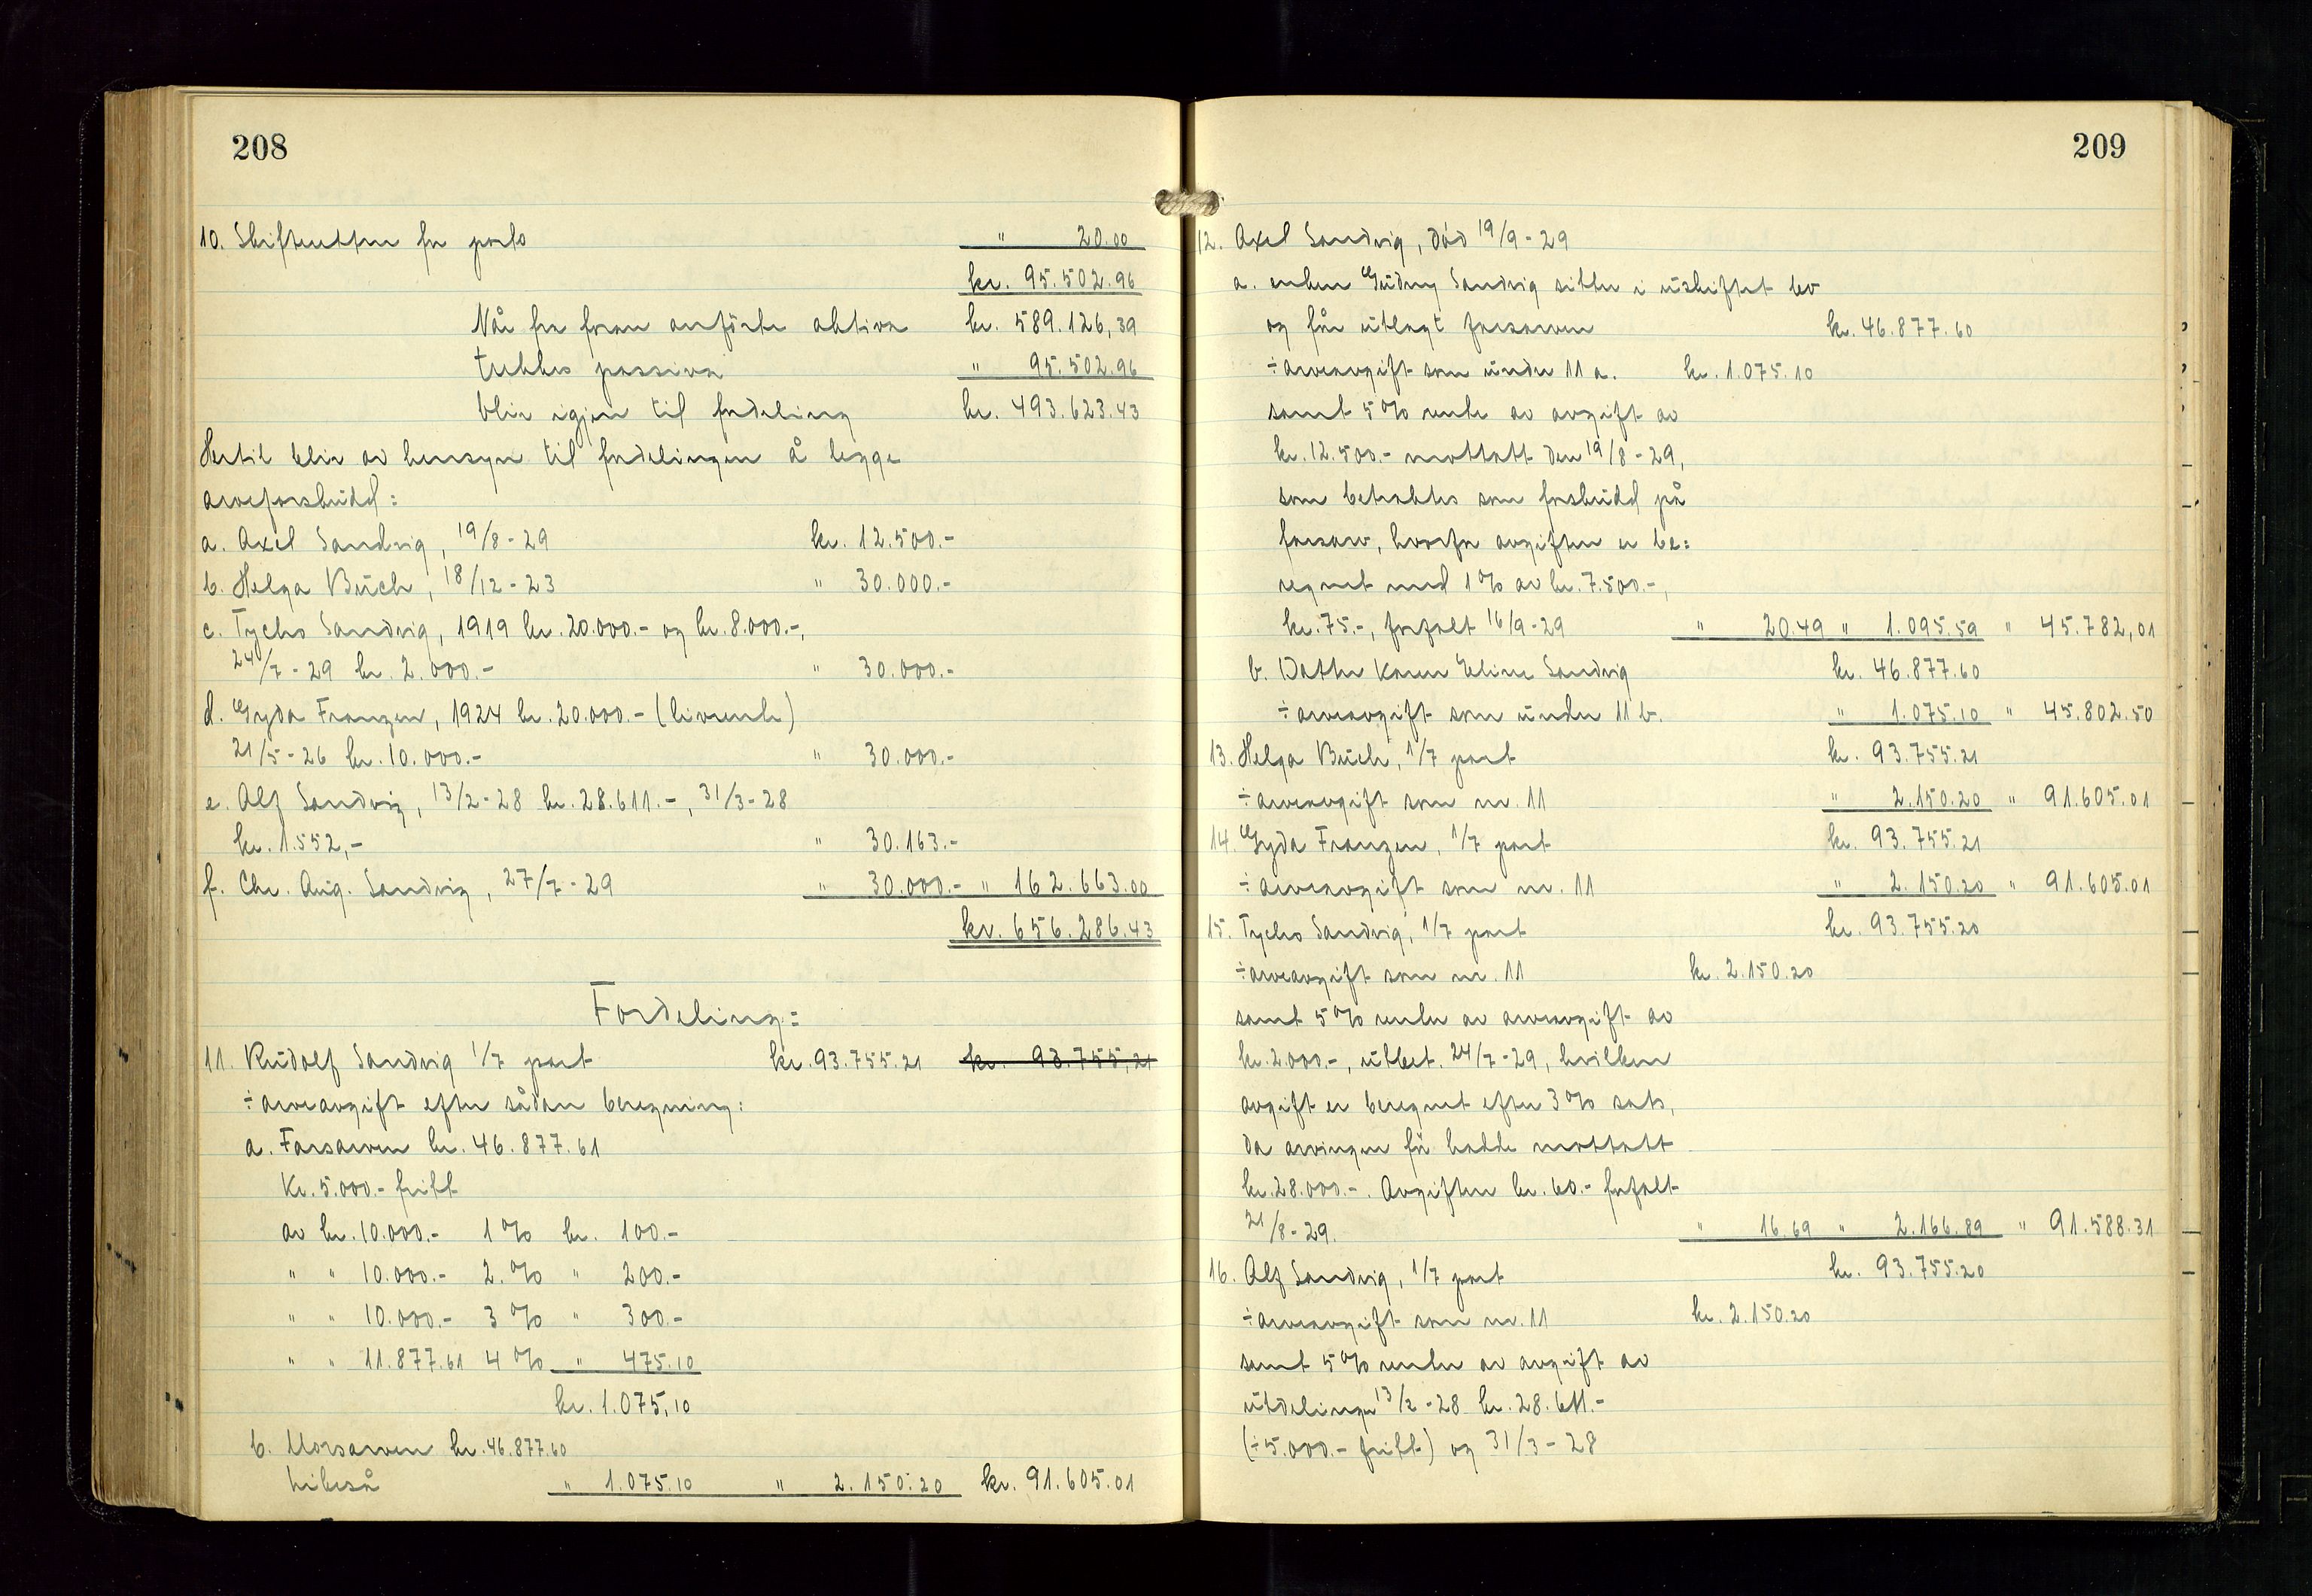 208
10. Skifteretten for porto " 20.00
kr. 95.502.96
Når fra foran anförte aktiva kr. 589.126,39
trekkes passiva " 95.502.96
blir igjen til fordeling kr. 493.623.43
Hertil blir av hensyn til fordelingen å legge
arveforskudd:
a. Axel Sandvig, 19/8-29 kr. 12.500.-
b. Helga Büch, 18/12-23 " 30.000.-
c. Tycho Sandvig, 1919 kr. 20.000.- og kr. 8.000.-,
24/7-29 kr. 2.000.- " 30.000.-
d. Gyda Franzen, 1924 kr. 20.000.- (livrente)
21/5-26 kr. 10.000.- " 30.000.-
e. Alf Sandvig, 13/2-28 kr. 28.611.-, 31/3-28
kr. 1.552,- " 30.163.-
f. Chr. Aug. Sandvig, 27/7-29 " 30.000.- " 162.663.00
kr. 656.286.43
Fordeling:
11. Rudolf Sandvig 1/7 part kr. 93.755.21 kr. 93.755,21
÷ arveavgift efter sådan beregning:
a. Farsarven kr. 46.877.61
Kr. 5.000.- fritt
av kr. 10.000.- 1% kr. 100.-
" " 10.000.- 2.% " 200.-
" " 10.000.- 3% " 300.-
" " 11.877.61 4% " 475.10
kr. 1.075,10
b. Morsarven kr. 46.877.60
likeså " 1.075.10 " 2.150.20 kr. 91.605.01
209
12. Axel Sandvig, död 19/9-29
a. enken Gudny Sandvig sitter i uskiftet bo
og får utlagt farsarven kr. 46.877.60
÷ arveavgift som under 11 a. kr. 1.075.10
samt 5% rente av avgift av
kr. 12.500.- mottatt den 19/8-29,
som betraktes som forskudd på
farsarv, hvorfor avgiften er be=
regnet med 1% av kr. 7.500.-,
kr. 75.-, forfalt 16/9-29 " 20.49 " 1.095.59 " 45.782,01
b. Datter Karen Eline Sandvig kr. 46.877.60
÷ arveavgift som under 11 b. " 1.075.10 " 45.802.50
13. Helga Büch, 1/7 part kr. 93.755.21
÷ arveavgift som nr. 11 " 2.150.20 " 91.605.01
14. Gyda Franzen, 1/7 part kr. 93.755.21
÷ arveavgift som nr. 11 " 2.150.20 " 91.605.01
15. Tycho Sandvig, 1/7 part kr. 93.755.20
÷ arveavgift som nr. 11 kr. 2.150.20
samt 5% renter av arveavgift av
kr. 2.000.-, utbet. 24/7-29, hvilken
avgift er beregnet efter 3% sats,
da arvingen för hadde mottatt
kr. 28.000.-. Avgiften kr. 60.- forfalt
21/8-29. " 16.69 " 2.166.89 " 91.588.31
16. Alf Sandvig, 1/7 part kr. 93.755.20
÷ arveavgift som nr. 11 kr. 2.150.20
samt 5% renter av avgift av
utdelingen 13/2-28 kr. 28.611.-
(÷ 5.000.- fritt) og 31/3-28